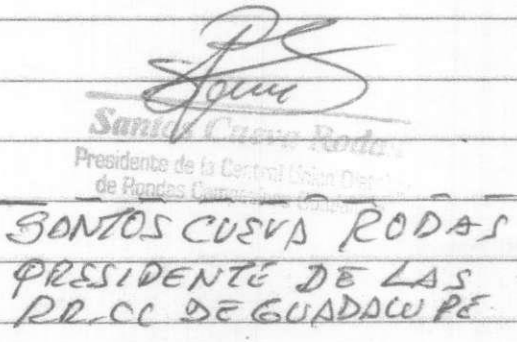 Santos Cueva Rodas
Presidente de la Central Union
de Rondas Campesinas
SANTOS CUEVA RODAS
PRESIDENTE DE LAS
RR.CC DE GUADALUPE